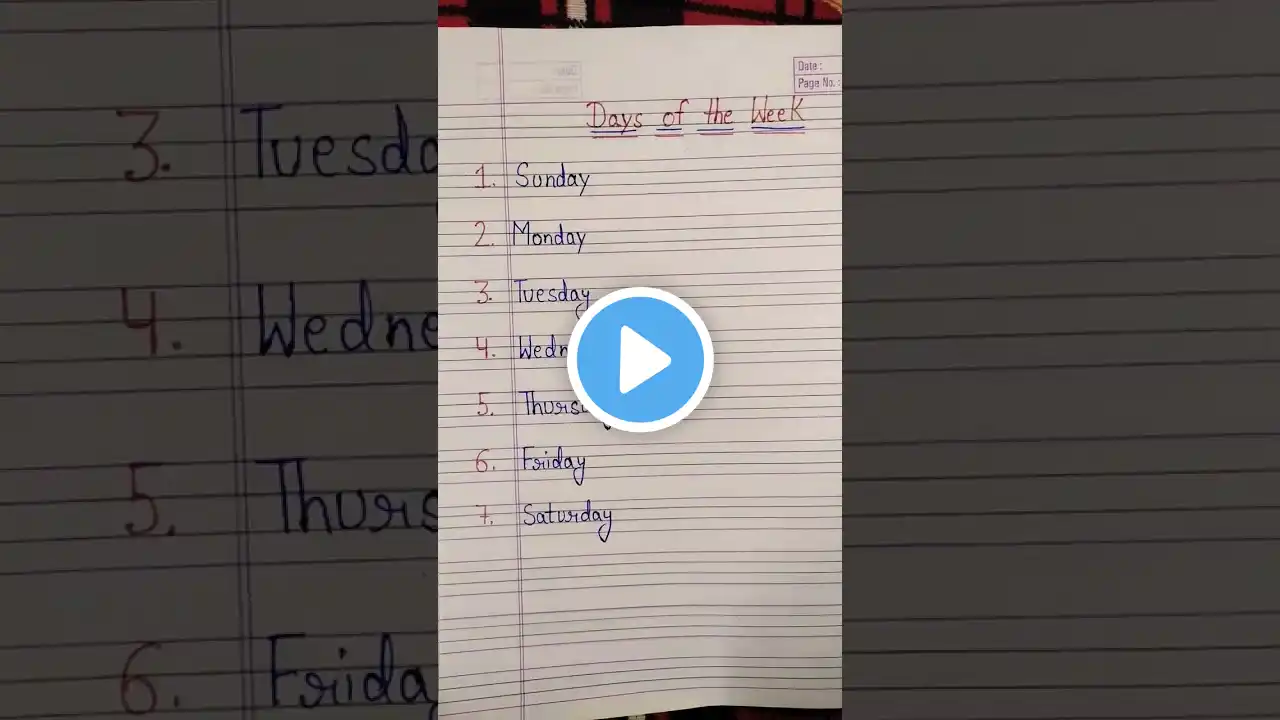 Date :
Page No. :
Days of the Week
1. Sunday
2. Monday
3. Tuesday
4.
5.
6. Friday
7. Saturday
3.
4.
5.
6.